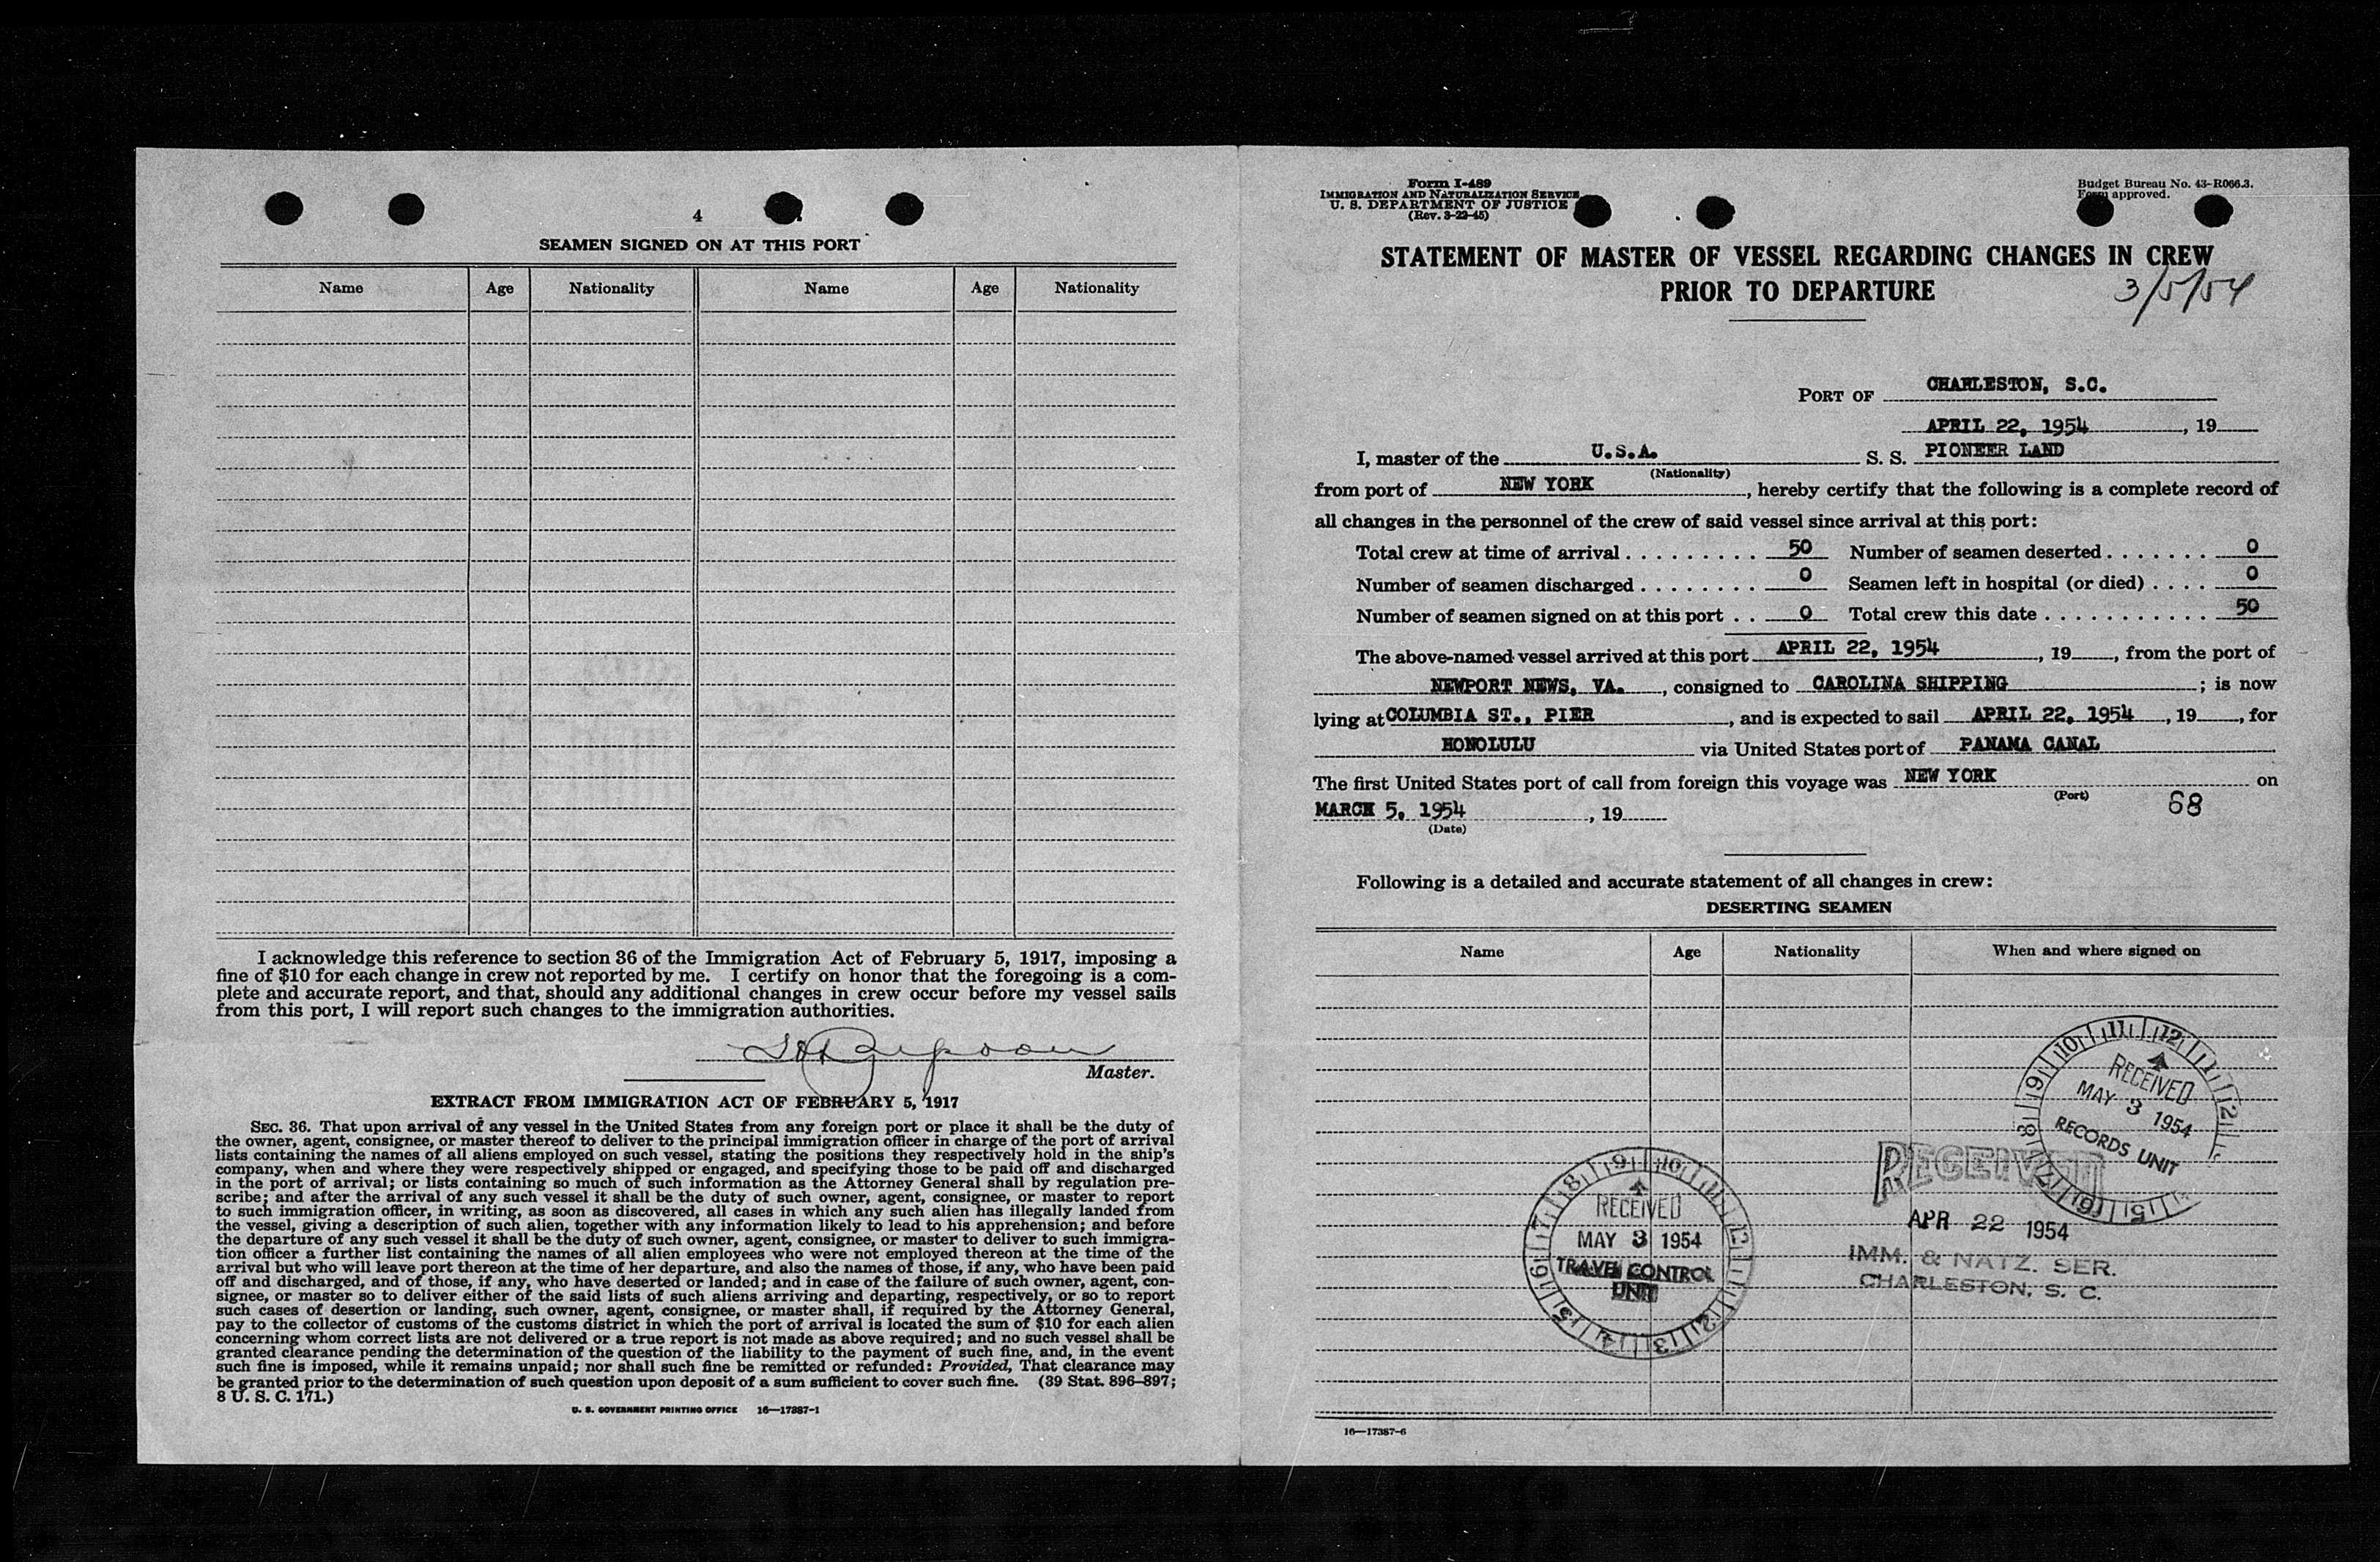 4
SEAMEN SIGNED ON AT THIS PORT
Name Age Nationality Name Age Nationality
I acknowledge this reference to section 36 of the Immigration Act of February 5, 1917, imposing a
fine of $10 for each change in crew not reported by me. I certify on honor that the foregoing is a com-
plete and accurate report, and that, should any additional changes in crew occur before my vessel sails
from this port, I will report such changes to the immigration authorities.
Master.
EXTRACT FROM IMMIGRATION ACT OF FEBRUARY 5, 1917
SEC. 36. That upon arrival of any vessel in the United States from any foreign port or place it shall be the duty of
the owner, agent, consignee, or master thereof to deliver to the principal immigration officer in charge of the port of arrival
lists containing the names of all aliens employed on such vessel, stating the positions they respectively hold in the ship's
company, when and where they were respectively shipped or engaged, and specifying those to be paid off and discharged
in the port of arrival; or lists containing so much of such information as the Attorney General shall by regulation pre-
scribe; and after the arrival of any such vessel it shall be the duty of such owner, agent, consignee, or master to report
to such immigration officer, in writing, as soon as discovered, all cases in which any such alien has illegally landed from
the vessel, giving a description of such alien, together with any information likely to lead to his apprehension; and before
the departure of any such vessel it shall be the duty of such owner, agent, consignee, or master to deliver to such immigra-
tion officer a further list containing the names of all alien employees who were not employed thereon at the time of the
arrival but who will leave port thereon at the time of her departure, and also the names of those, if any, who have been paid
off and discharged, and of those, if any, who have deserted or landed; and in case of the failure of such owner, agent, con-
signee, or master so to deliver either of the said lists of such aliens arriving and departing, respectively, or so to report
such cases of desertion or landing, such owner, agent, consignee, or master shall, if required by the Attorney General,
pay to the collector of customs of the customs district in which the port of arrival is located the sum of $10 for each alien
concerning whom correct lists are not delivered or a true report is not made as above required; and no such vessel shall be
granted clearance pending the determination of the question of the liability to the payment of such fine, and, in the event
such fine is imposed, while it remains unpaid; nor shall such fine be remitted or refunded: Provided, That clearance may
be granted prior to the determination of such question upon deposit of a sum sufficient to cover such fine. (39 Stat. 896–897;
8 U. S. C. 171.)
U. S. GOVERNMENT PRINTING OFFICE 16—17387-1
Form I-489
IMMIGRATION AND NATURALIZATION SERVICE
U. S. DEPARTMENT OF JUSTICE
(Rev. 3-22-45)
Budget Bureau No. 43-R066.3.
Form approved.
STATEMENT OF MASTER OF VESSEL REGARDING CHANGES IN CREW
PRIOR TO DEPARTURE
3/5/54
PORT OF CHARLESTON, S.C.
APRIL 22, 1954, 19
I, master of the U.S.A. S. S. PIONEER LAND
(Nationality)
from port of NEW YORK, hereby certify that the following is a complete record of
all changes in the personnel of the crew of said vessel since arrival at this port:
Total crew at time of arrival . . . . . . . . . 50 Number of seamen deserted . . . . . . . 0
Number of seamen discharged . . . . . . . . 0 Seamen left in hospital (or died) . . . . 0
Number of seamen signed on at this port . . 0 Total crew this date . . . . . . . . . . . 50
The above-named vessel arrived at this port APRIL 22, 1954, 19, from the port of
NEWPORT NEWS, VA., consigned to CAROLINA SHIPPING; is now
lying at COLUMBIA ST., PIER, and is expected to sail APRIL 22, 1954, 19, for
HONOLULU via United States port of PANAMA CANAL
The first United States port of call from foreign this voyage was NEW YORK on
(Port) 68
MARCH 5, 1954, 19
(Date)
Following is a detailed and accurate statement of all changes in crew:
DESERTING SEAMEN
Name Age Nationality When and where signed on
11 12 1 2 5 6 7 8 9 10
RECEIVED
MAY 3 1954
RECORDS UNIT
9 10 11 12 1 2 3 4 5 6 7 8
RECEIVED
MAY 3 1954
TRAVEL CONTROL
UNIT
RECEIVED
APR 22 1954
IMM. & NATZ. SER.
CHARLESTON, S. C.
16—17387-6